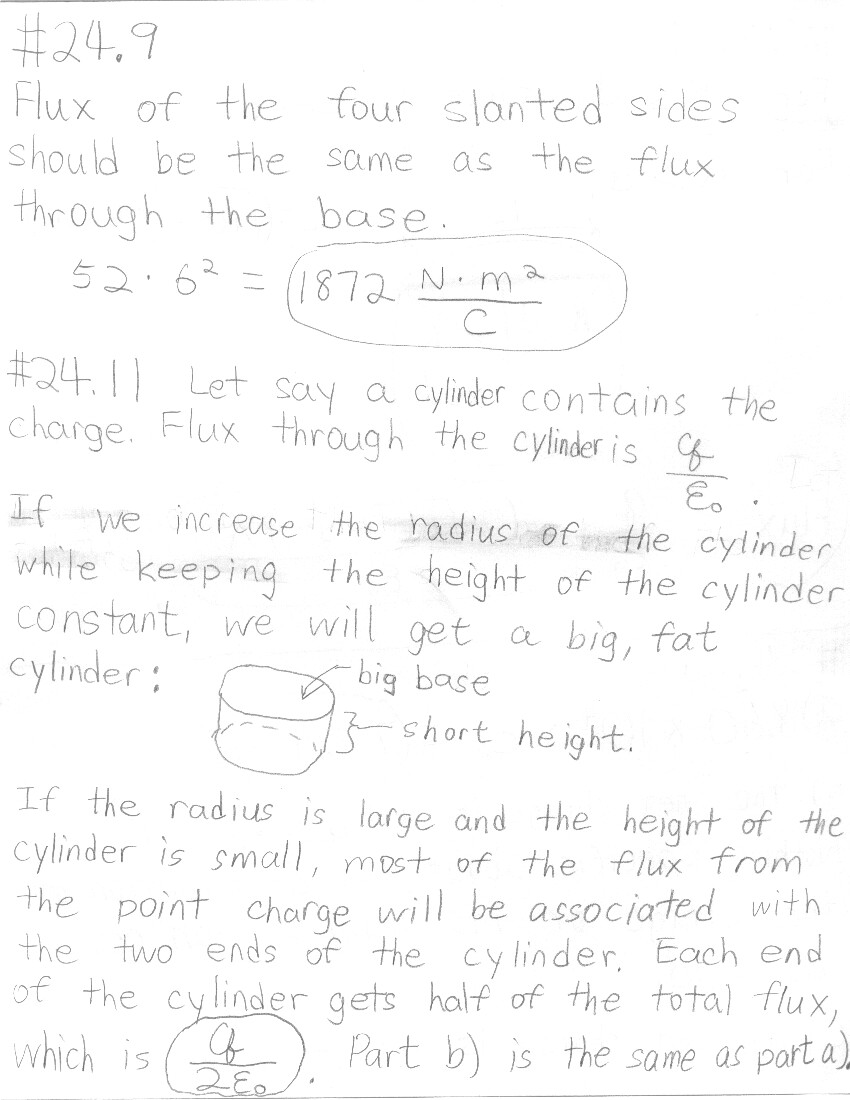 #24.9
Flux of the four slanted sides
should be the same as the flux
through the base.
52 · 6² = 1872 N·m²/C
#24.11 Let say a cylinder contains the
charge. Flux through the cylinder is q/ε₀.
If we increase the radius of the cylinder
while keeping the height of the cylinder
constant, we will get a big, fat
cylinder:
big base
short height.
If the radius is large and the height of the
cylinder is small, most of the flux from
the point charge will be associated with
the two ends of the cylinder. Each end
of the cylinder gets half of the total flux,
which is q/2ε₀. Part b) is the same as part a).